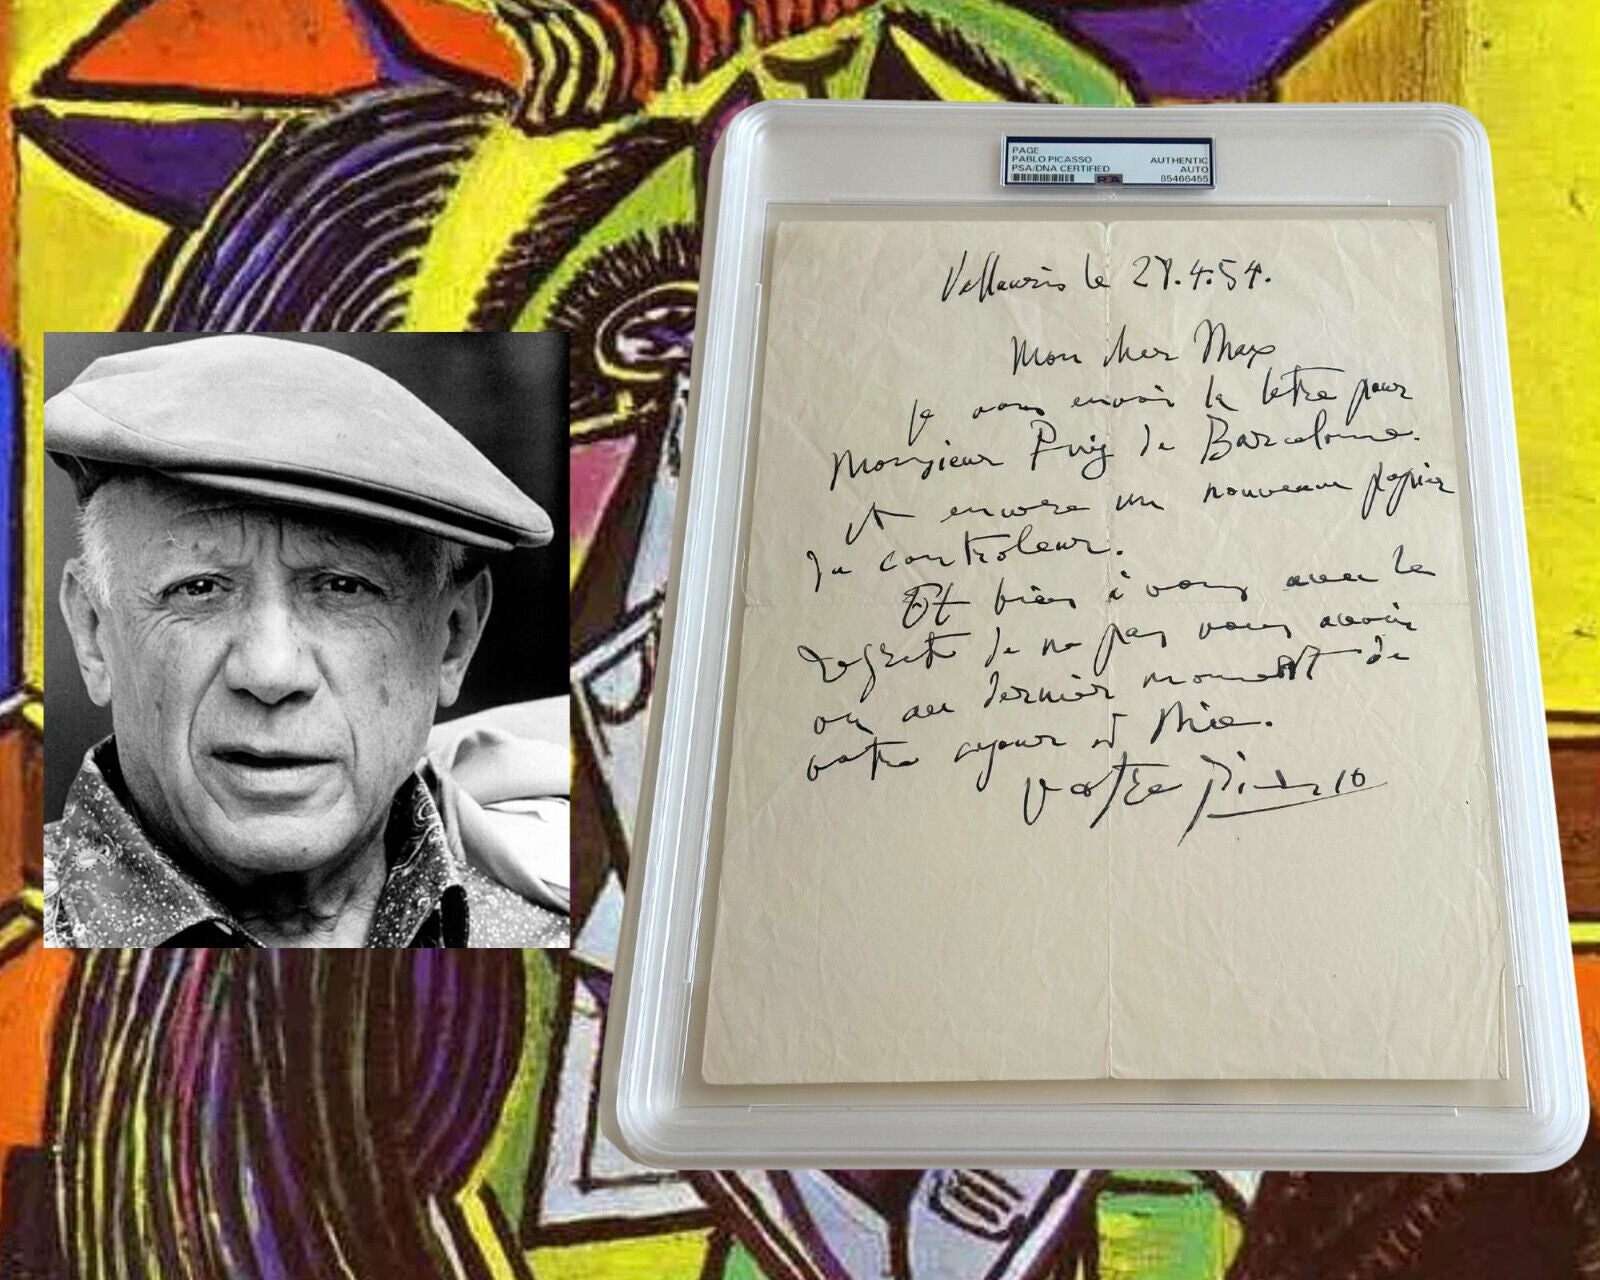 PAGE
PABLO PICASSO
PSA/DNA CERTIFIED
AUTHENTIC
AUTO
PSA
85466455
Vallauris le 28.4.54.
Mon cher Max
je vous envoie la lettre pour
Monsieur Puig de Barcelone.
et encore un nouveau papier
du controleur.
Et bien à vous avec le
regret de ne pas vous avoir
vu au dernier moment de
votre sejour à Nice.
Votre Picasso